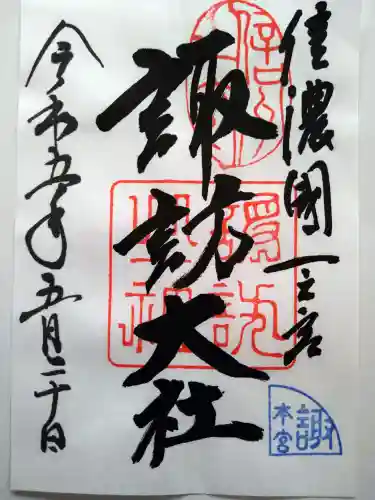 信濃國一之宮
諏訪大社
令和五年五月二十日
諏
本宮